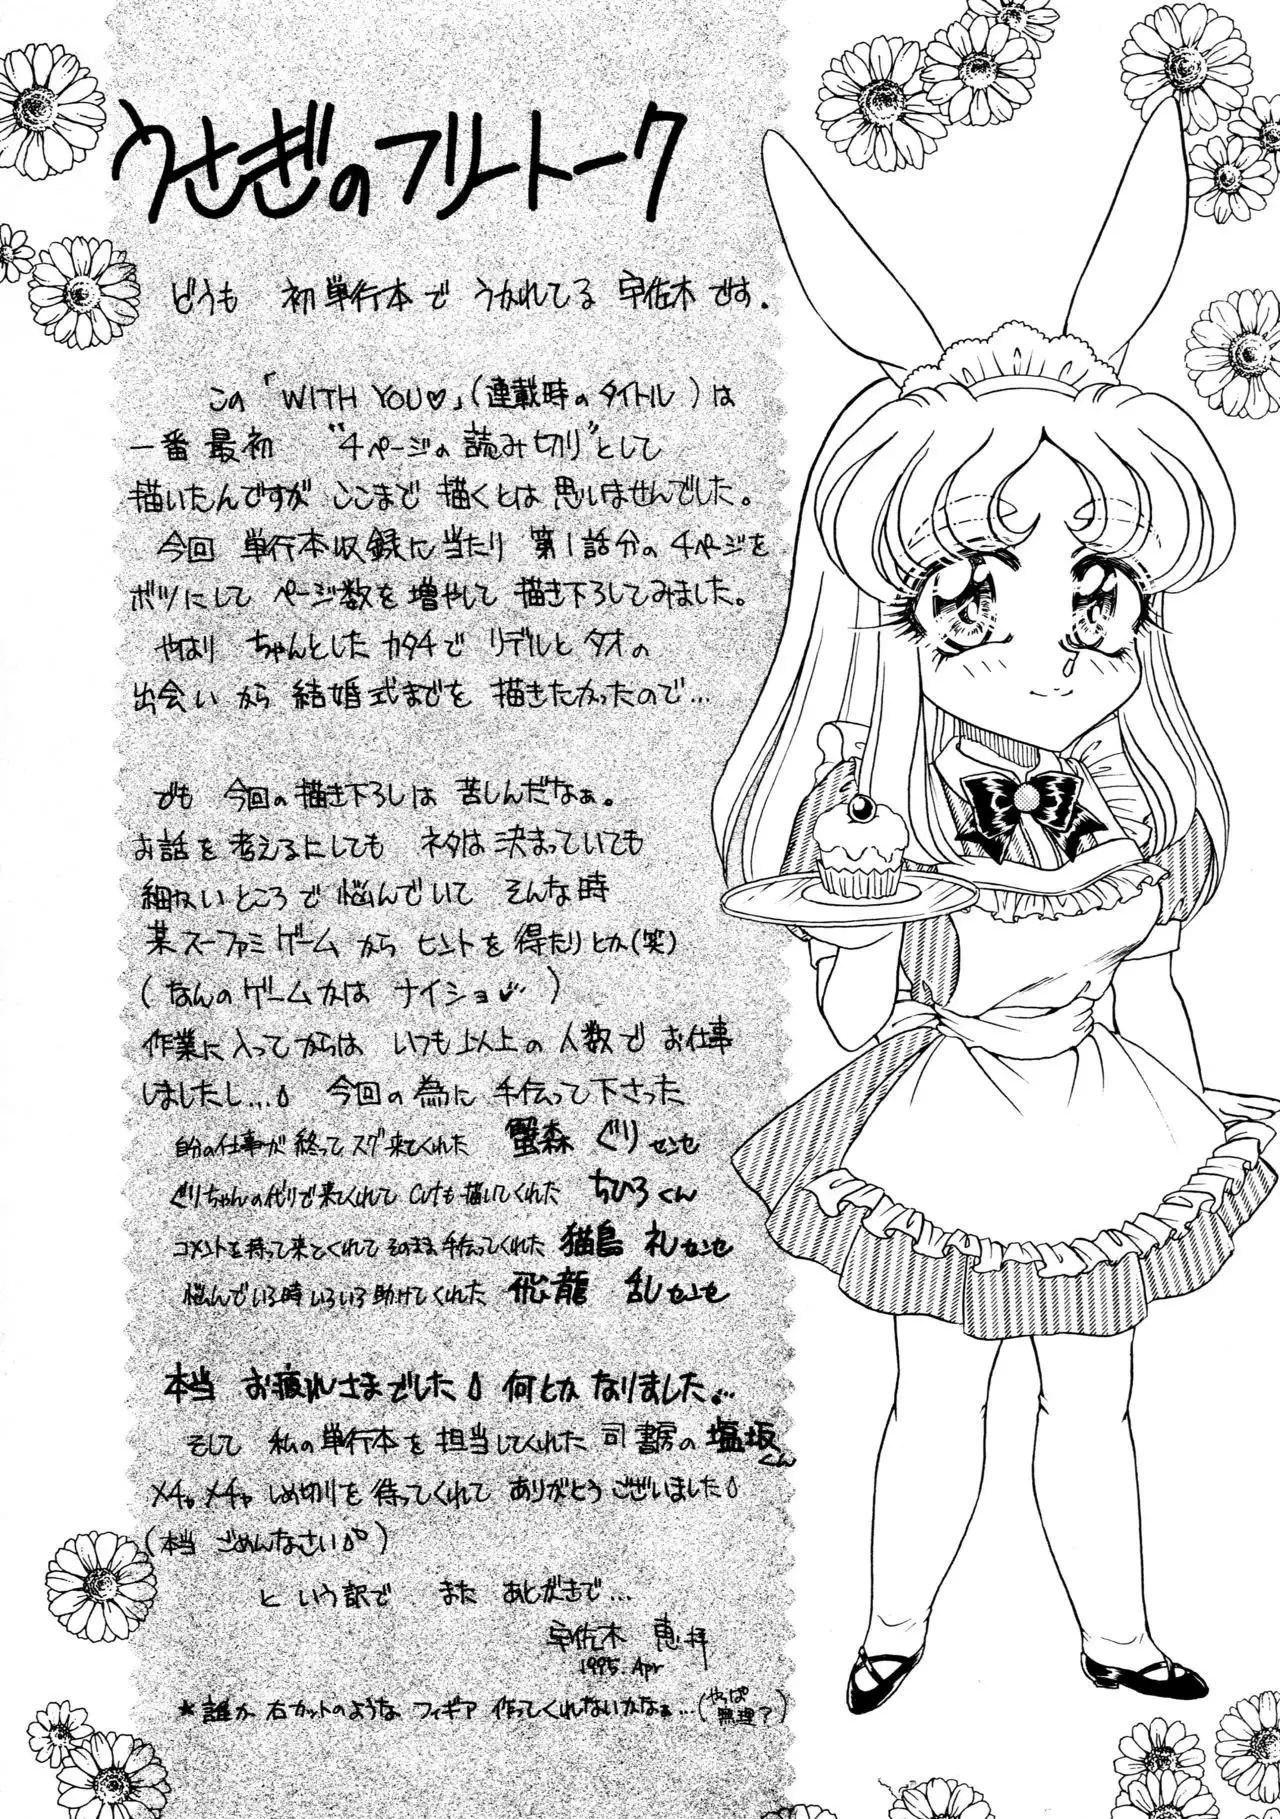 うさぎのフリートーク
どうも 初単行本で うかれてる 宇佐木です.
この「WITH YOU♡」(連載時のタイトル)は
一番最初 “4ページの読み切り”として
描いたんですが ここまで 描くとは 思いませんでした。
今回 単行本収録に当たり 第1話分の4ページを
ボツにして ページ数を増やして 描き下ろしてみました。
やはり ちゃんとした カタチで リデルと タオの
出会い から 結婚式までを 描きたかったので…
でも 今回の描き下ろしは 苦しんだなぁ。
お話を考えるにしても ネタは決まっていても
細かいところで悩んでいて そんな時
某スーファミゲームから ヒントを得たりとか(笑)
(なんのゲームかは ナイショ♡)
作業に入ってからは いつも以上の人数で お仕事
しましたし… 今回の為に 手伝って下さった
自分の仕事が終って スグ来てくれた 蟹森 ぐり センセ
ぐりちゃんの代りで来てくれて Cutも描いてくれた ちひろくん
コメントを持って来てくれて そのまま手伝ってくれた 猫島 礼 センセ
悩んでいる時いろいろ助けてくれた 飛龍 乱 センセ
本当 お疲れさまでした 何とか なりました…
そして 私の単行本を担当してくれた 司書房の塩坂くん
メチャメチャ しめ切りを待ってくれて ありがとうございました
(本当 ごめんなさい)
という訳で また あとがきで…
宇佐木 恵 拝
1995. Apr
★誰か 右カットのような フィギア 作ってくれないかなぁ…(やっぱ無理?)